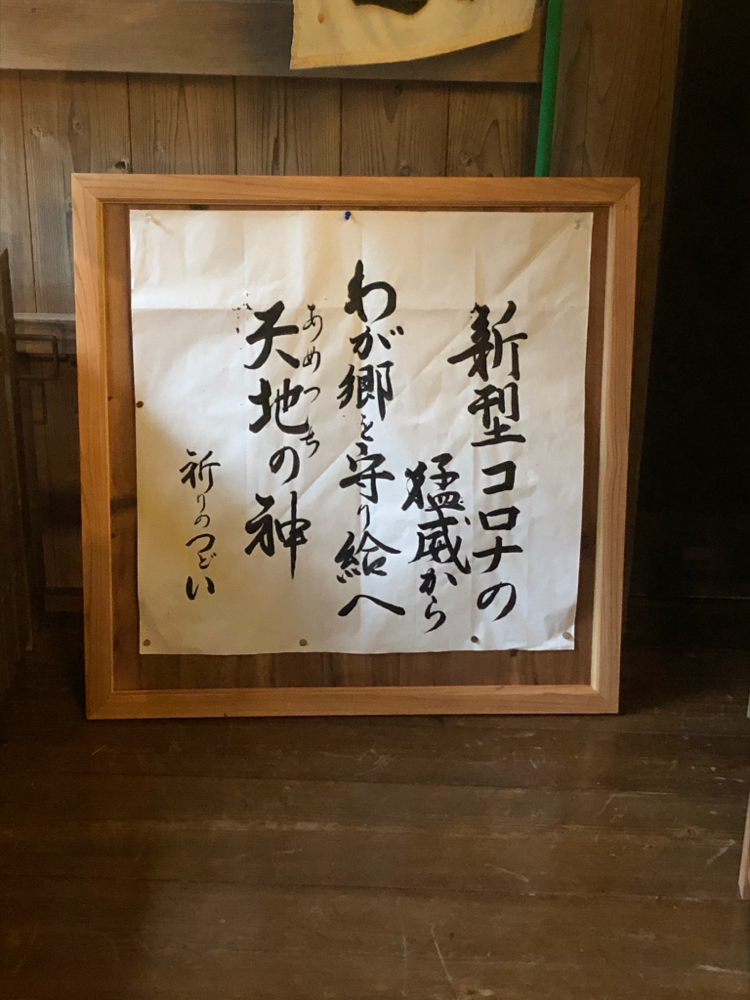 新型コロナの
猛威から
わが郷を守り給へ
あめつち
天地の神
祈りのつどい